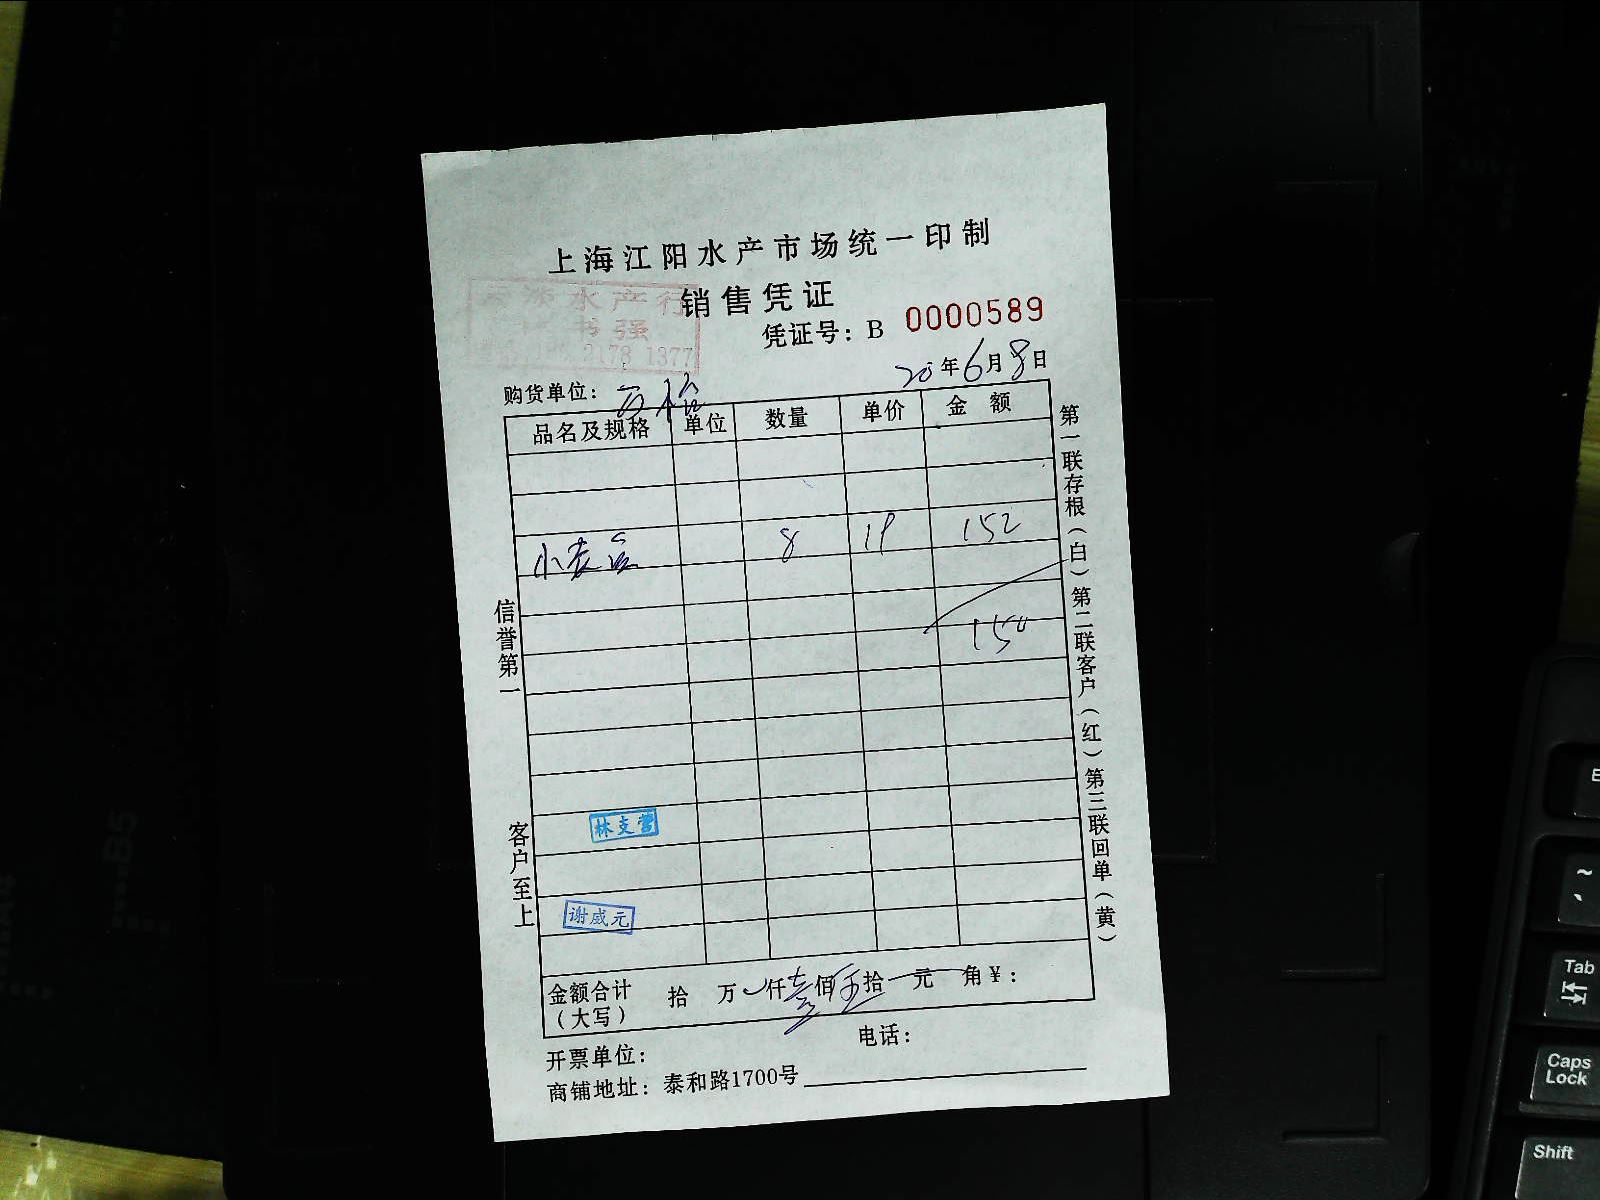 上海江阳水产市场统一印制
销售凭证
水产行
书强
2178 1377
凭证号：B 0000589
20年6月8日
购货单位：
品名及规格 单位 数量 单价 金额
小 8 19 152
150
林支营
谢威元
金额合计（大写） 拾 万 仟壹佰五拾 元 角¥：
开票单位： 电话：
商铺地址：泰和路1700号
信誉第一 客户至上
第一联存根（白）第二联客户（红）第三联回单（黄）
B5
Tab
Caps Lock
Shift